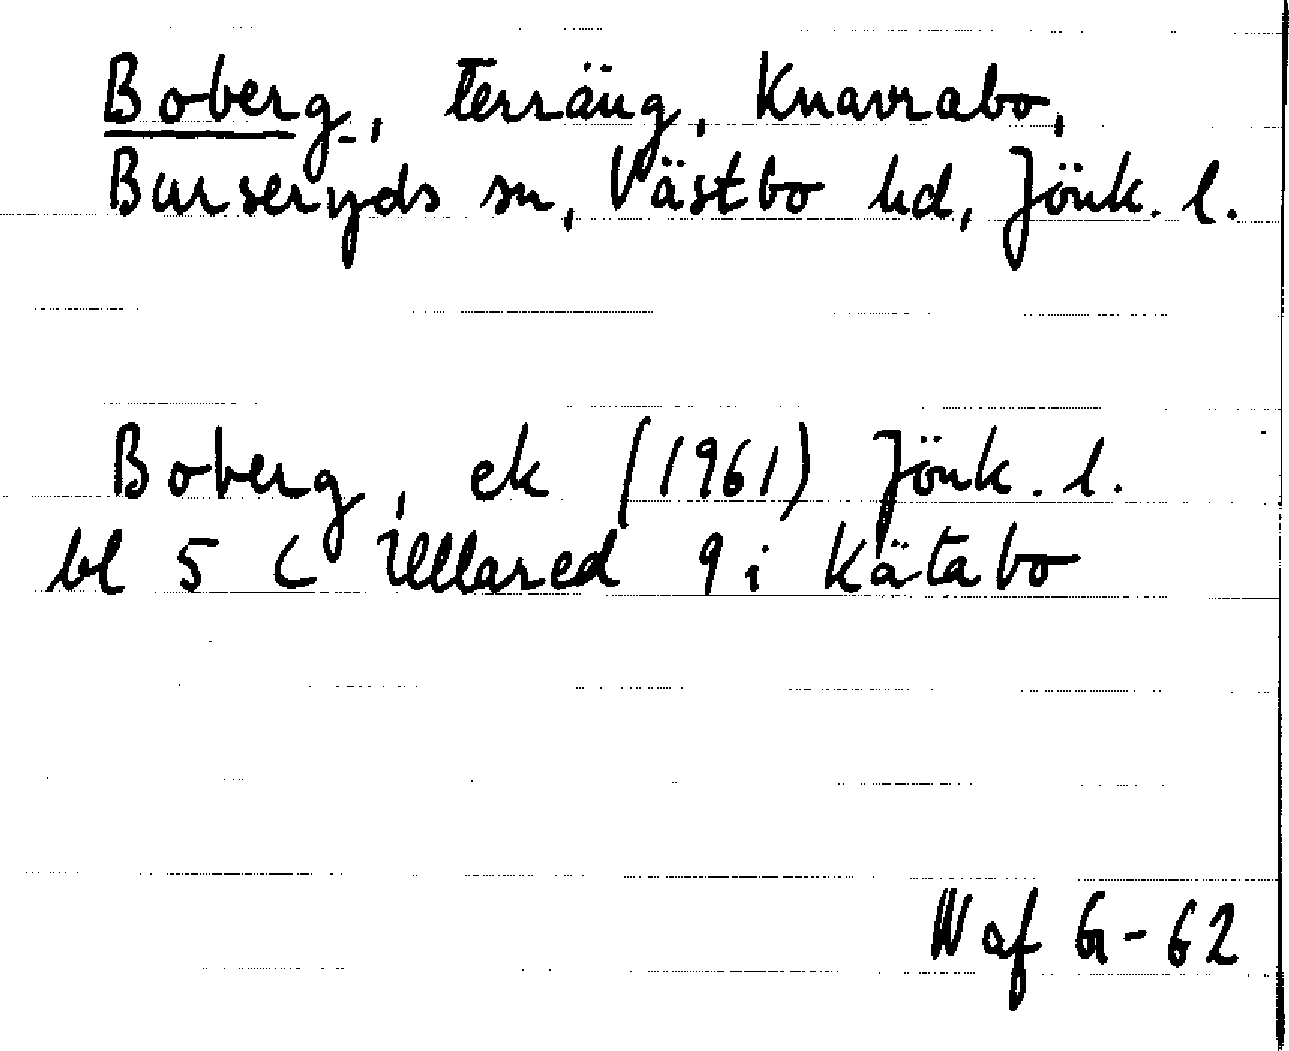 Boberg, terräng, Knavrabo,
Burseryds sn, Västbo hd, Jönk. l.
Boberg, ek (1961) Jönk. l.
bl 5 C Ullared 9 i Kätabo
W af G-62